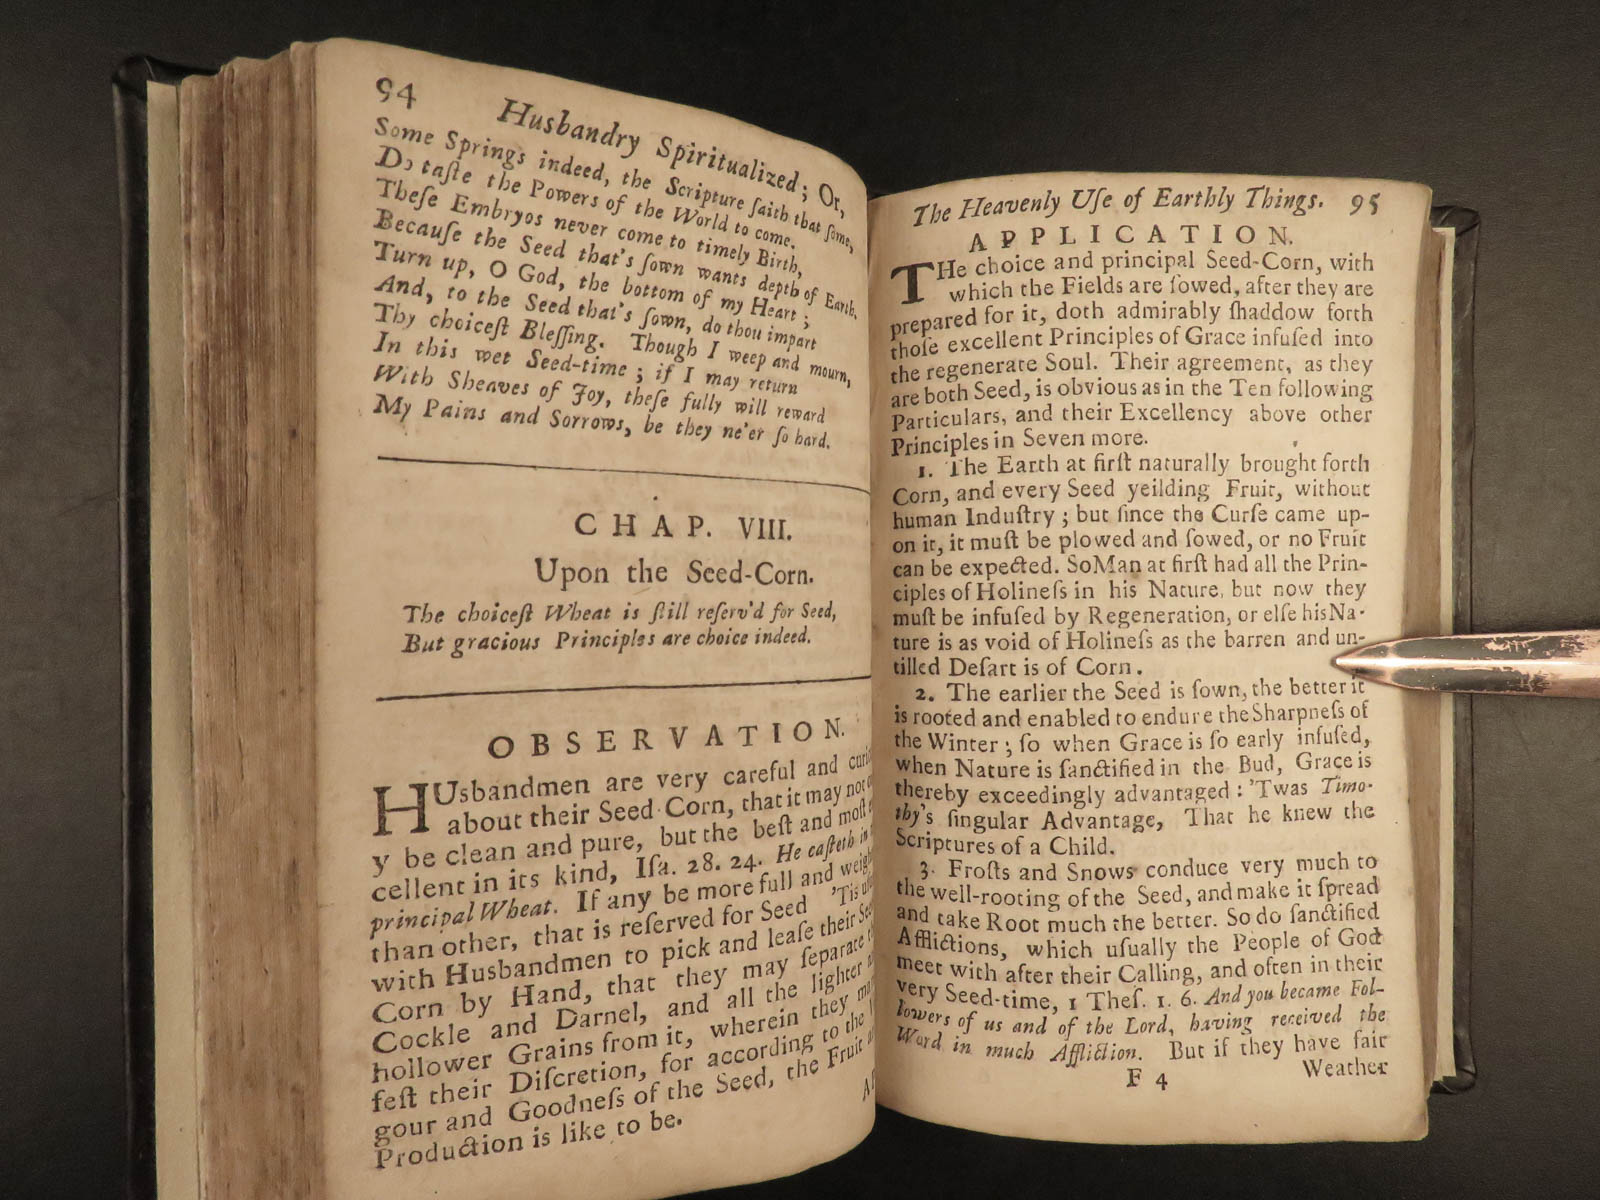 94
Husbandry Spiritualized; Or,
Some Springs indeed, the Scripture ſaith that ſome,
Do taſte the Powers of the World to come.
Theſe Embryos never come to timely Birth,
Becauſe the Seed that's ſown wants depth of Earth.
Turn up, O God, the bottom of my Heart;
And, to the Seed that's ſown, do thou impart
Thy choiceſt Bleſſing. Though I weep and mourn,
In this wet Seed-time; if I may return
With Sheaves of Joy, theſe fully will reward
My Pains and Sorrows, be they ne'er ſo hard.
CHAP. VIII.
Upon the Seed-Corn.
The choiceſt Wheat is ſtill reſerv'd for Seed,
But gracious Principles are choice indeed.
OBSERVATION.
HUsbandmen are very careful and
about their Seed-Corn, that it may not
y be clean and pure, but the beſt and moſt
cellent in its kind, Iſa. 28. 24. He caſteth in
principal Wheat. If any be more full and
than other, that is reſerved for Seed 'Tis
with Husbandmen to pick and leaſe their
Corn by Hand, that they may ſeparate
Cockle and Darnel, and all the lighter
hollower Grains from it, wherein they
feſt their Diſcretion, for according to the
gour and Goodneſs of the Seed, the Fruit
Production is like to be.
The Heavenly Uſe of Earthly Things. 95
APPLICATION.
THe choice and principal Seed-Corn, with
which the Fields are ſowed, after they are
prepared for it, doth admirably ſhaddow forth
thoſe excellent Principles of Grace infuſed into
the regenerate Soul. Their agreement, as they
are both Seed, is obvious as in the Ten following
Particulars, and their Excellency above other
Principles in Seven more.
1. The Earth at firſt naturally brought forth
Corn, and every Seed yeilding Fruit, without
human Induſtry; but ſince the Curſe came up-
on it, it muſt be plowed and ſowed, or no Fruit
can be expected. So Man at firſt had all the Prin-
ciples of Holineſs in his Nature, but now they
muſt be infuſed by Regeneration, or elſe his Na-
ture is as void of Holineſs as the barren and un-
tilled Deſart is of Corn.
2. The earlier the Seed is ſown, the better it
is rooted and enabled to endure the Sharpneſs of
the Winter; ſo when Grace is ſo early infuſed,
when Nature is ſanctified in the Bud, Grace is
thereby exceedingly advantaged: 'Twas Timo-
thy's ſingular Advantage, That he knew the
Scriptures of a Child.
3. Froſts and Snows conduce very much to
the well-rooting of the Seed, and make it ſpread
and take Root much the better. So do ſanctified
Afflictions, which uſually the People of God
meet with after their Calling, and often in their
very Seed-time, 1 Theſ. 1. 6. And you became Fol-
lowers of us and of the Lord, having received the
Word in much Affliction. But if they have fair
F 4
Weather